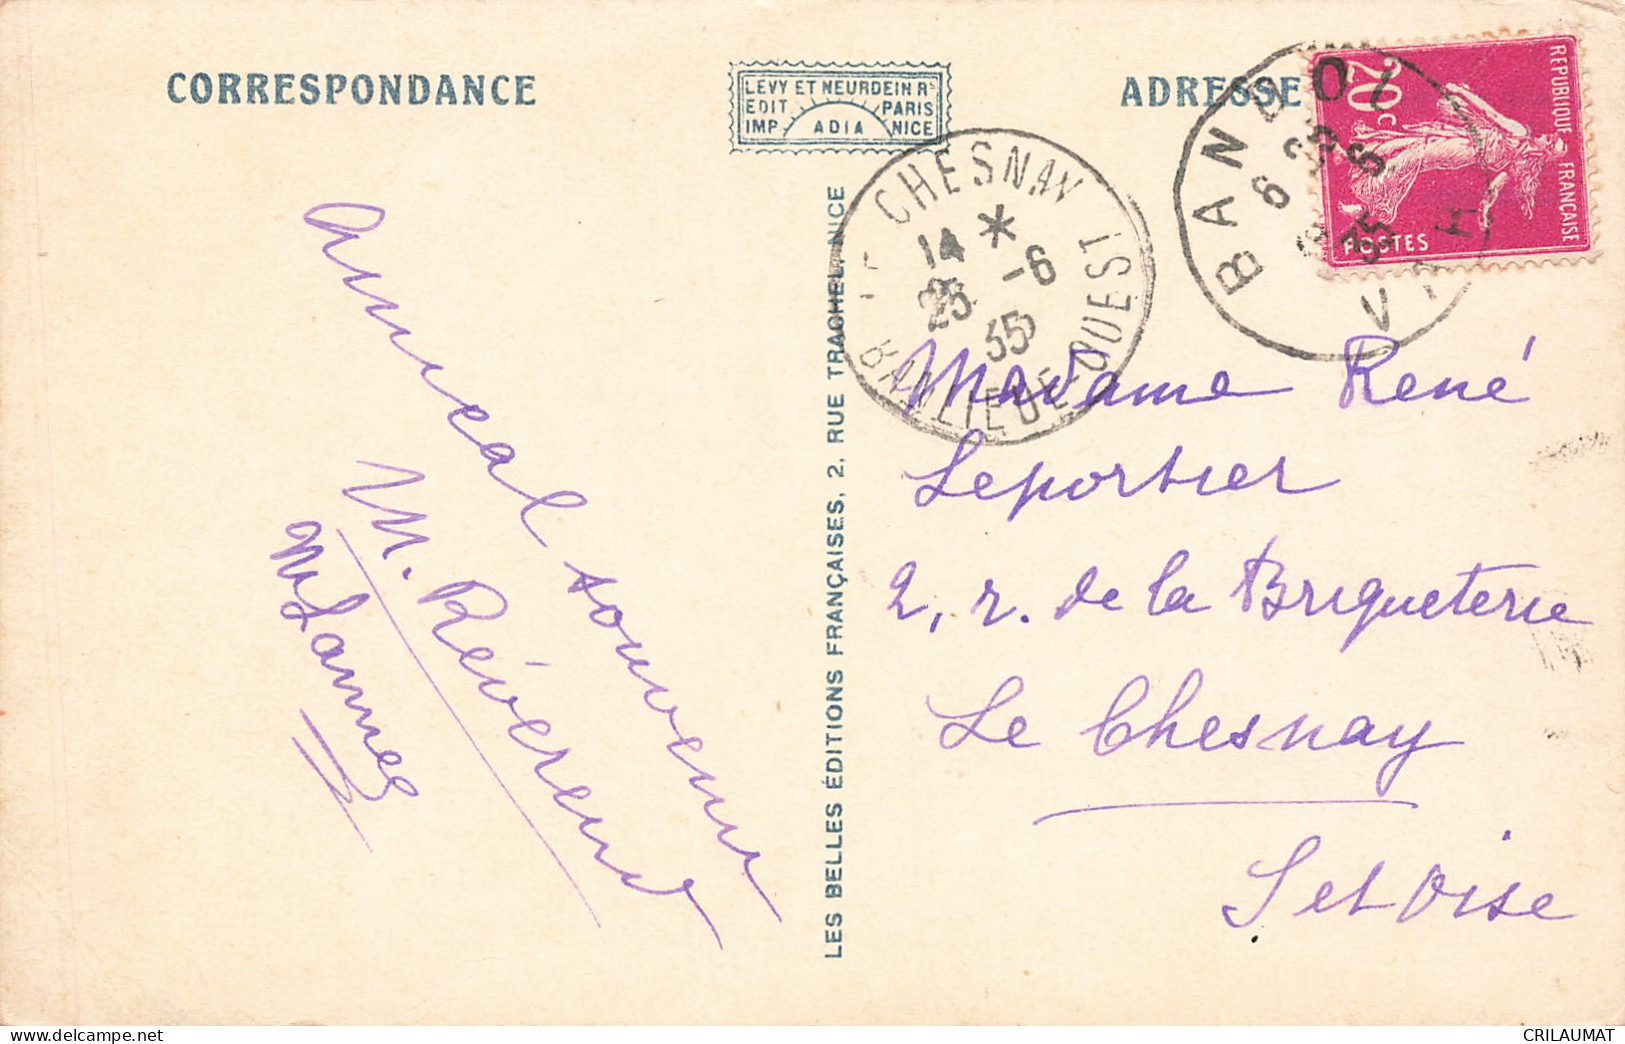 CORRESPONDANCE
LEVY ET NEURDEIN Rs
EDIT. PARIS
IMP. ADIA NICE
ADRESSE
REPUBLIQUE FRANÇAISE
20c
POSTES
BANDOL
VAR
6 35
CHESNAY
14 *
25 -6
35
BANLIEUE-OUEST
Amical souvenir
M. Révérend
M Lannes
LES BELLES ÉDITIONS FRANÇAISES, 2, RUE TRACHEL, NICE
Madame René
Leportier
2, r. de la Briqueterie
Le Chesnay
S et Oise
delcampe.net
CRILAUMAT